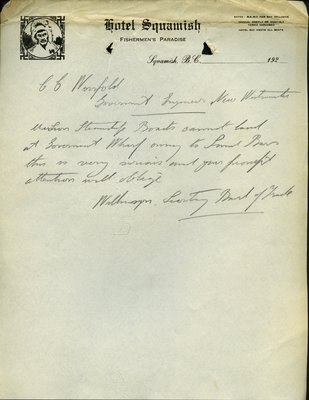 Hotel Squamish
FISHERMEN'S PARADISE
Squamish, B.C. 192
C C Worsfold
Government Engineer New Westminster
Steamship Boats cannot land
at Government Wharf owing to Sand Bars
this is very serious and your prompt
attention will oblige
Secretary Board of Trade